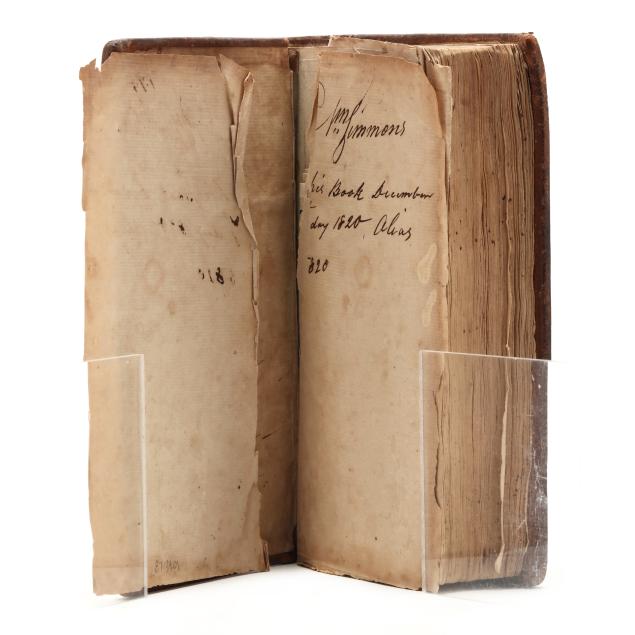 Wm Simmons
his Book December
day 1820, Alias
820